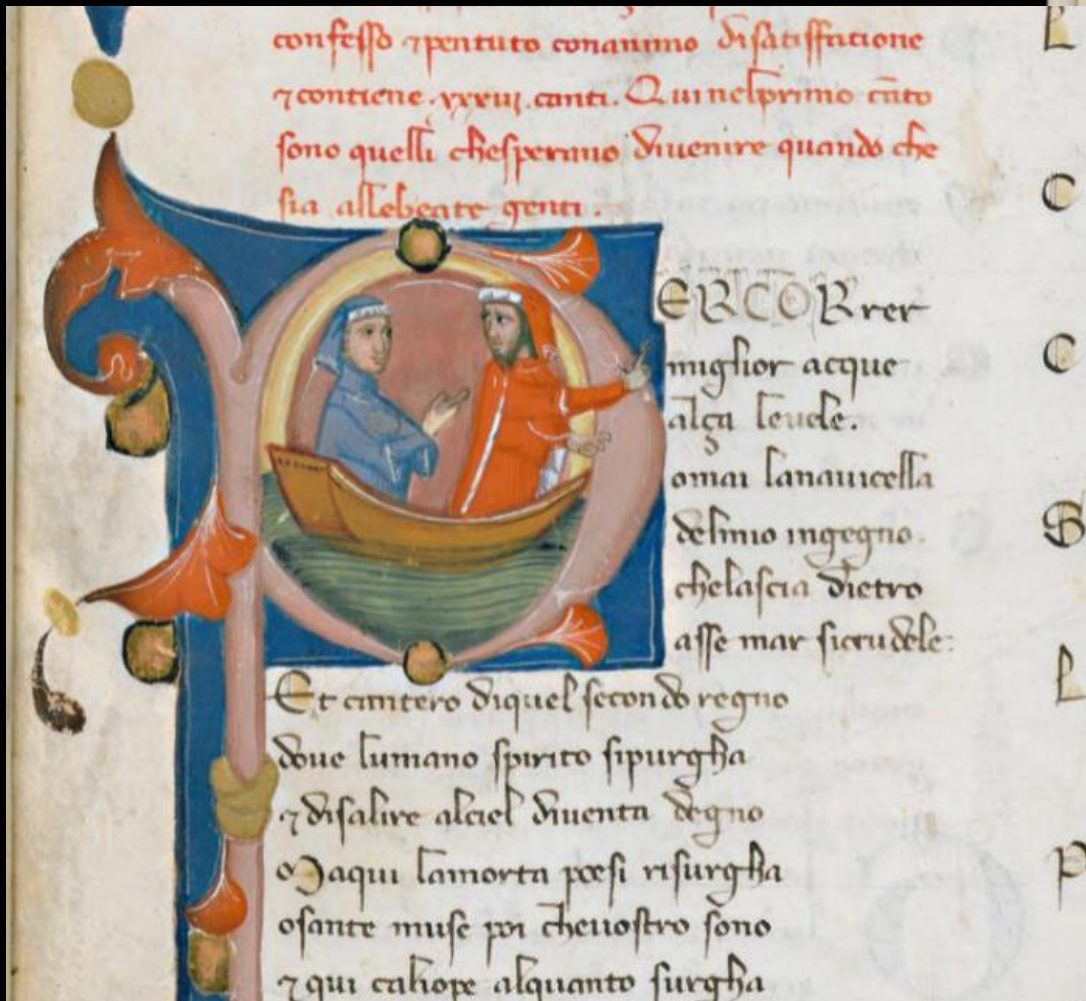 confesso ⁊pentuto conanimo disatisffatione
⁊contiene .xxxiij. canti. Qui nelprimo cāto
sono quelli chesperano diuenire quando che
sia allebeate genti.
PERCORrer
miglior acque
alça leuele.
omai lanauicella
delmio ingegno.
chelascia dietro
asse mar sicrudele:
Et cantero diquel secondo regno
doue lumano spirito sipurgha
⁊disalire alciel diuenta degno
Maqui lamorta poesi risurgha
osante muse poi cheuostro sono
⁊qui caliope alquanto surgha
L
C
C
G
L
P